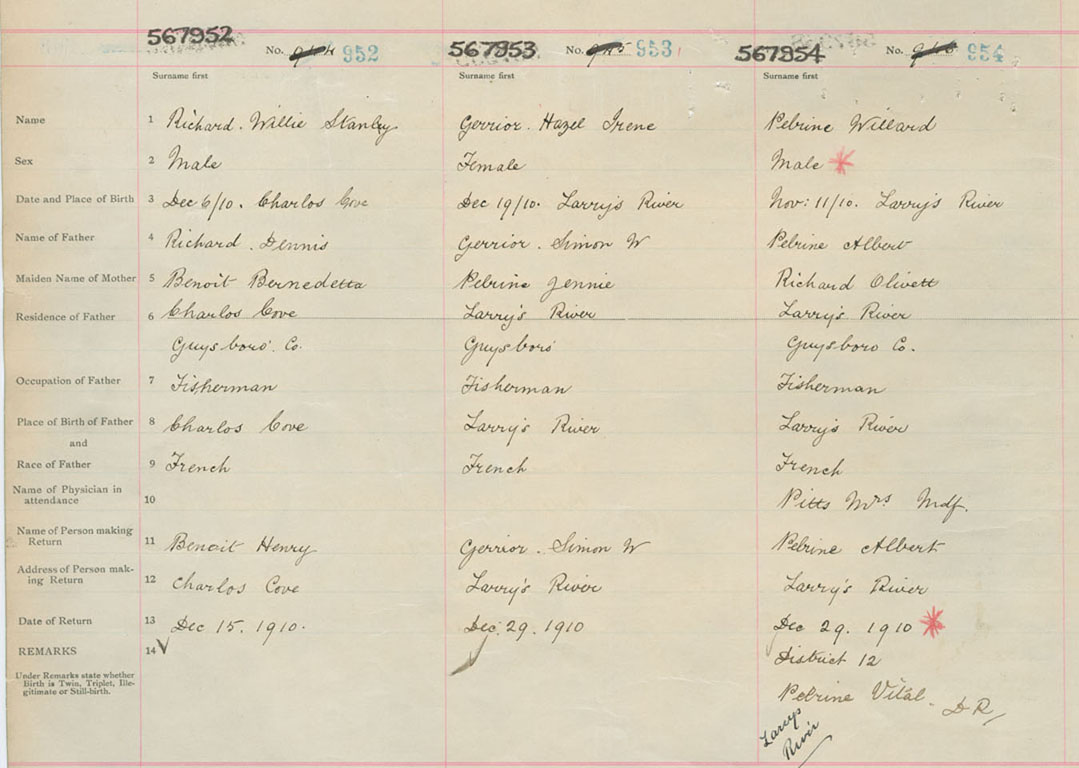 567952 No. 952 567953 No. 953 567954 No. 954
Surname first Surname first Surname first
Name 1 Richard. Willie Stanley Gerrior. Hazel Irene Pelrine Willard
Sex 2 Male Female Male
Date and Place of Birth 3 Dec 6/10. Charlos Cove Dec 19/10. Larry's River Nov: 11/10. Larry's River
Name of Father 4 Richard. Dennis Gerrior. Simon W Pelrine Albert
Maiden Name of Mother 5 Benoit Bernedetta Pelrine Jennie Richard Olivett
Residence of Father 6 Charlos Cove Larry's River Larry's River
Guysboro' Co. Guysboro' Guysboro Co.
Occupation of Father 7 Fisherman Fisherman Fisherman
Place of Birth of Father 8 Charlos Cove Larry's River Larry's River
and
Race of Father 9 French French French
Name of Physician in
attendance 10 Pitts Mrs Mdf.
Name of Person making
Return 11 Benoit Henry Gerrior. Simon W Pelrine Albert
Address of Person mak-
ing Return 12 Charlos Cove Larry's River Larry's River
Date of Return 13 Dec 15. 1910. Dec. 29. 1910 Dec 29. 1910
REMARKS 14 District 12
Under Remarks state whether
Birth is Twin, Triplet, Ille-
gitimate or Still-birth.
Pelrine Vital. D R
Larrys
River